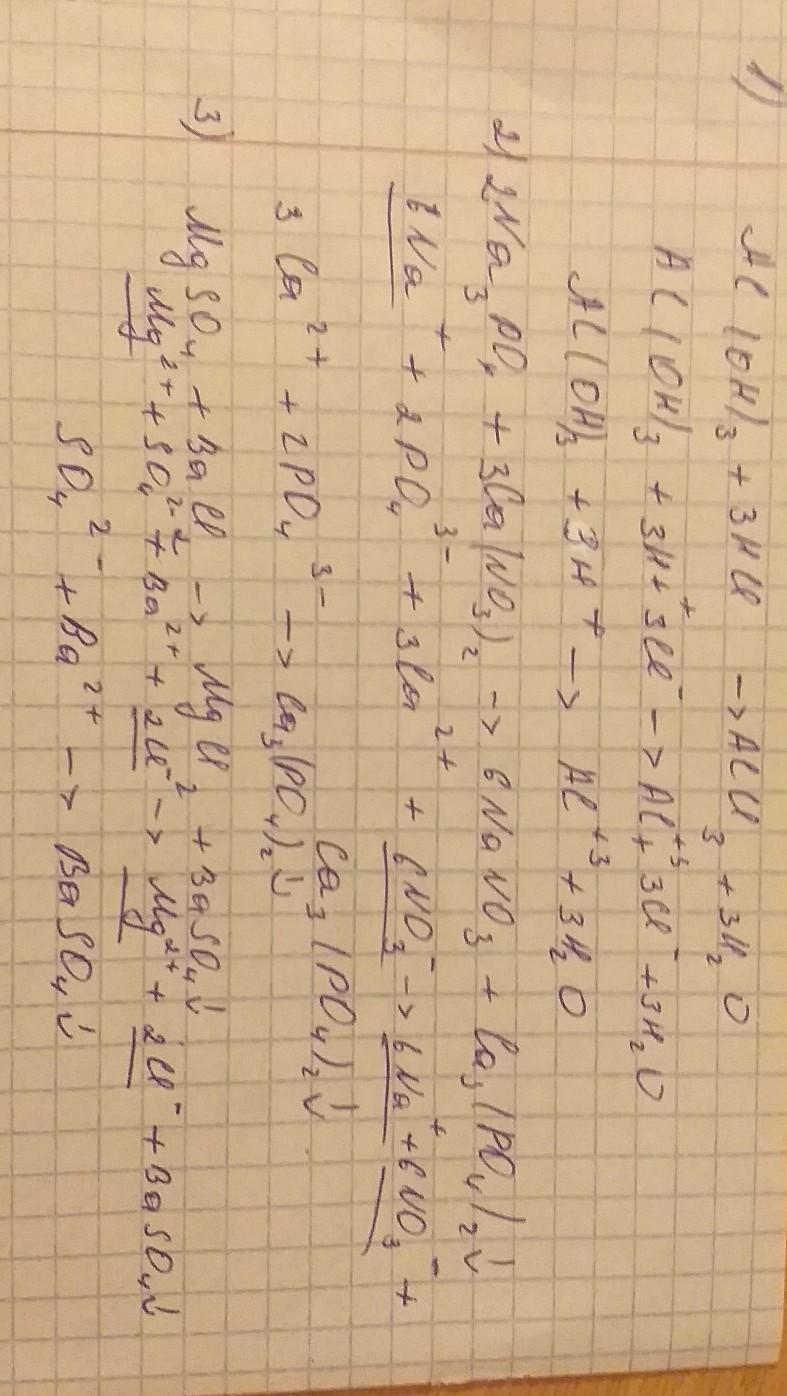 1) Al(OH)3 + 3HCl → AlCl3 + 3H2O
Al(OH)3 + 3H+ + 3Cl- → Al+3 + 3Cl- + 3H2O
Al(OH)3 + 3H+ → Al+3 + 3H2O
2) 2Na3PO4 + 3Ca(NO3)2 → 6NaNO3 + Ca3(PO4)2↓
6Na+ + 2PO4 3- + 3Ca2+ + 6NO3- → 6Na+ + 6NO3- +
Ca3(PO4)2↓
3Ca2+ + 2PO4 3- → Ca3(PO4)2↓
3) MgSO4 + BaCl2 → MgCl2 + BaSO4↓
Mg2+ + SO4 2- + Ba2+ + 2Cl- → Mg2+ + 2Cl- + BaSO4↓
SO4 2- + Ba2+ → BaSO4↓